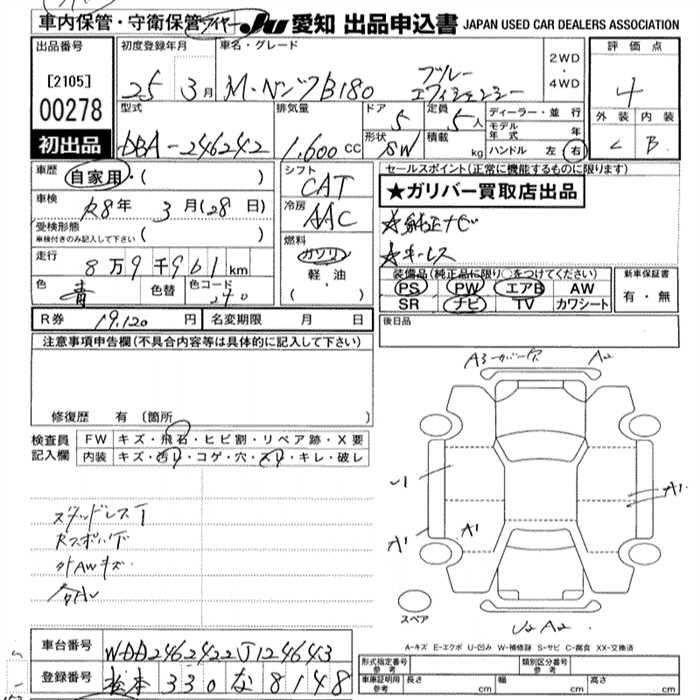 車内保管・守衛保管 タイヤー JU 愛知 出品申込書 JAPAN USED CAR DEALERS ASSOCIATION
出品番号 初度登録年月 車名・グレード 2WD 評価点
[2105] 25 3月 M・ベンツB180 ブルー ・ 4
00278 エフィシェンシー 4WD
型式 排気量 ドア 定員 ディーラー・並行 外装 内装
初出品 DBA-246242 1,600cc 5 5人 モデル年式 年 C B
形状 SW 積載 kg ハンドル 左 右
車歴 自家用・( ) シフト セールスポイント(正常に機能するものに限り)
CAT ★ガリバー買取店出品
車検 R8年 3月(28日) 冷房 ☆純正ナビ
受検形態 AAC ☆キーレス
車検付きのみ記入して下さい ( ) 燃料
走行 8万9千961km ガソリン 装備品(純正品に限り○をつけてください) 新車保証書
軽・油 PS PW エアB AW 有・無
色 青 色替 色コード 240 ( ・ ) SR ナビ TV カワシート
R券 19,120円 名変期限 月 日 後日品
注意事項申告欄(不具合内容等は具体的に記入して下さい)
A3 カバーキズ A2
修復歴 有 (箇所
検査員 FW キズ・飛石・ヒビ割・リペア跡・X要
記入欄 内装 キズ・汚レ・コゲ・穴・スレ・キレ・破レ
A1
A1 A1
スタッドレスT
外AWキズ
スペア
U2 A2
A-キズ E-エクボ U-凹み W-補修跡 S-サビ C-腐食 XX-交換済
車台番号 WDD2462422J124643
形式指定番号 参考 類別区分番号 参考
登録番号 松本 330 な 8148
車庫証明用 参考 長さ cm 幅 cm 高さ cm